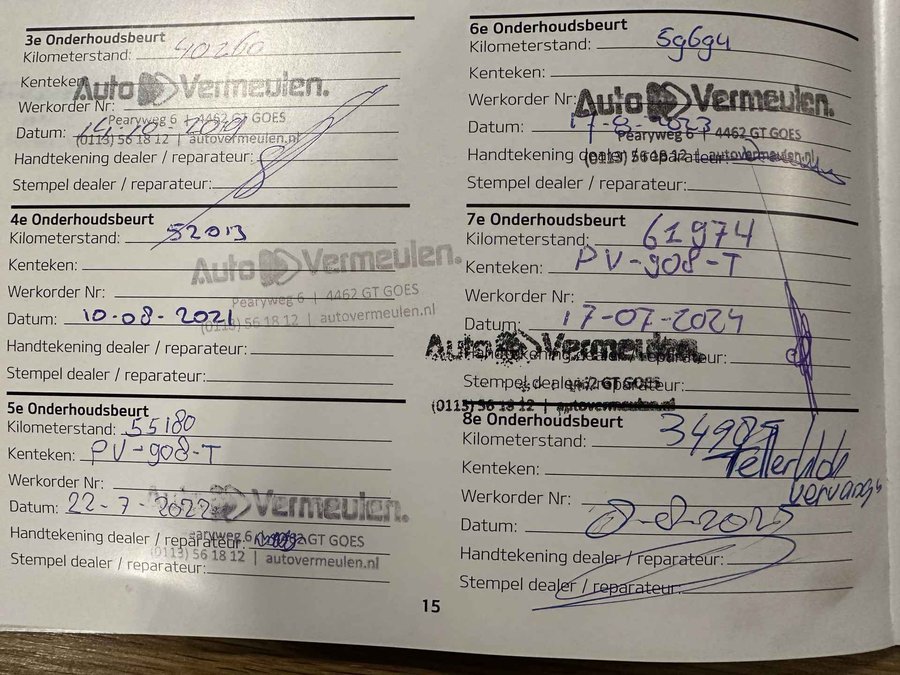 3e Onderhoudsbeurt
Kilometerstand: 40260
Kenteken:
Auto Vermeulen.
Werkorder Nr:
Pearyweg 6 | 4462 GT GOES
Datum: 14-10-2019
(0113) 56 18 12 | autovermeulen.nl
Handtekening dealer / reparateur:
Stempel dealer / reparateur:
4e Onderhoudsbeurt
Kilometerstand: 52013
Kenteken:
Auto Vermeulen.
Werkorder Nr:
Pearyweg 6 | 4462 GT GOES
Datum: 10-08-2021
(0113) 56 18 12 | autovermeulen.nl
Handtekening dealer / reparateur:
Stempel dealer / reparateur:
5e Onderhoudsbeurt
Kilometerstand: 55180
Kenteken: PV-908-T
Werkorder Nr:
Auto Vermeulen.
Datum: 22-7-2022
Pearyweg 6 | 4462 GT GOES
Handtekening dealer / reparateur:
(0113) 56 18 12 | autovermeulen.nl
Stempel dealer / reparateur:
6e Onderhoudsbeurt
Kilometerstand: 59694
Kenteken:
Werkorder Nr:
Auto Vermeulen.
Datum: 17-8-2023
Pearyweg 6 | 4462 GT GOES
Handtekening dealer / reparateur:
(0113) 56 18 12 | autovermeulen.nl
Stempel dealer / reparateur:
7e Onderhoudsbeurt
Kilometerstand: 61974
Kenteken: PV-908-T
Werkorder Nr:
Datum: 17-07-2024
Auto Vermeulen.
Handtekening dealer / reparateur:
Stempel dealer / reparateur:
4462 GT GOES
(0113) 56 18 12 | autovermeulen.nl
8e Onderhoudsbeurt
Kilometerstand: 34985
Tellerklok
Kenteken:
vervang
Werkorder Nr:
Datum: 8-8-2025
Handtekening dealer / reparateur:
Stempel dealer / reparateur:
15